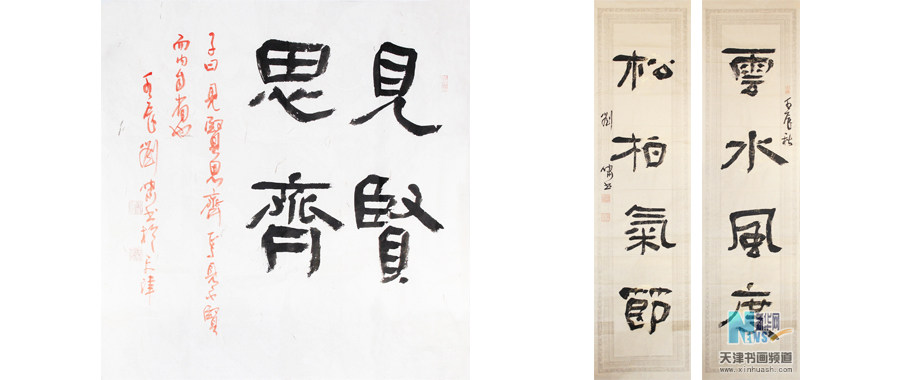 見賢
思齊
子曰見賢思齊焉見不賢
而內自省也
壬辰劉書於天津
雲水風度
壬辰秋
松柏氣節
劉書
NEWS
新华网
天津书画频道
www.ixinhuash.com